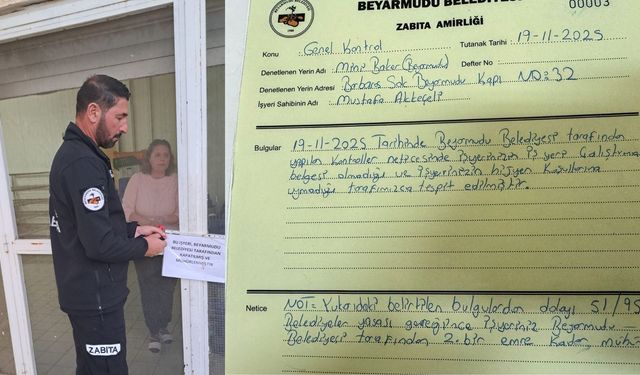 BEYARMUDU BELEDİYESİ
00003
ZABITA AMİRLİĞİ
Konu : Genel Kontrol
Tutanak Tarihi : 19-11-2025
Denetlenen Yerin Adı : Mini Baker (Beyarmudu)
Defter No :
Denetlenen Yerin Adresi : Barbaros Sok Beyarmudu Kapı NO: 32
İşyeri Sahibinin Adı : Mustafa Akkeçeli
Bulgular : 19-11-2025 Tarihinde Beyarmudu Belediyesi tarafından
yapılan kontroller neticesinde işyerinizin iş yeri Çalıştırma
belgesi olmadığı ve işyerinizin hijyen Kurallarına
uymadığı tarafımızca tespit edilmiştir.
Netice : NOT= Yukarıdaki belirtilen bulgulardan dolayı 51/95
Belediyeler yasası gereğince işyeriniz Beyarmudu
Belediyesi tarafından 2. bir emre kadar mühür
BU İŞYERİ, BEYARMUDU
BELEDİYESİ TARAFINDAN
KAPATILMIŞ VE
MÜHÜRLENMİŞTİR
ZABITA